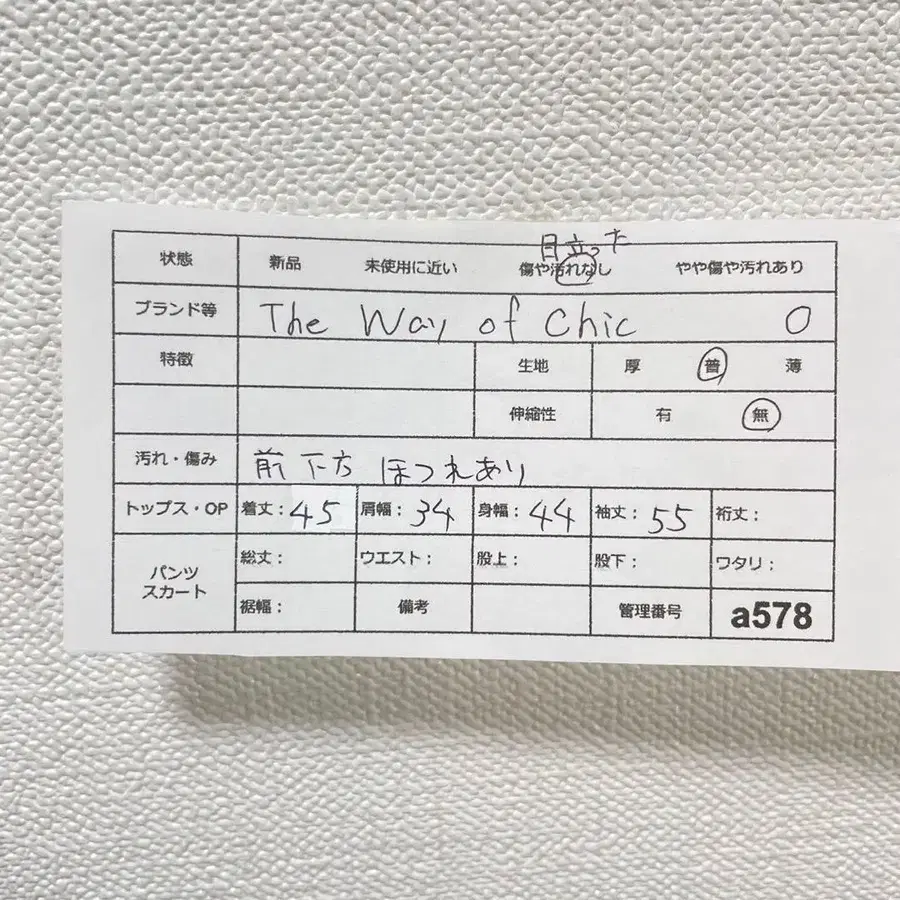 目立った
状態 新品 未使用に近い 傷や汚れなし やや傷や汚れあり
ブランド等 The Way of Chic 0
特徴 生地 厚 普 薄
伸縮性 有 無
汚れ・傷み 前 下方 ほつれあり
トップス・OP 着丈：45 肩幅：34 身幅：44 袖丈：55 裄丈：
パンツ 総丈： ウエスト： 股上： 股下： ワタリ：
スカート 裾幅： 備考 管理番号 a578